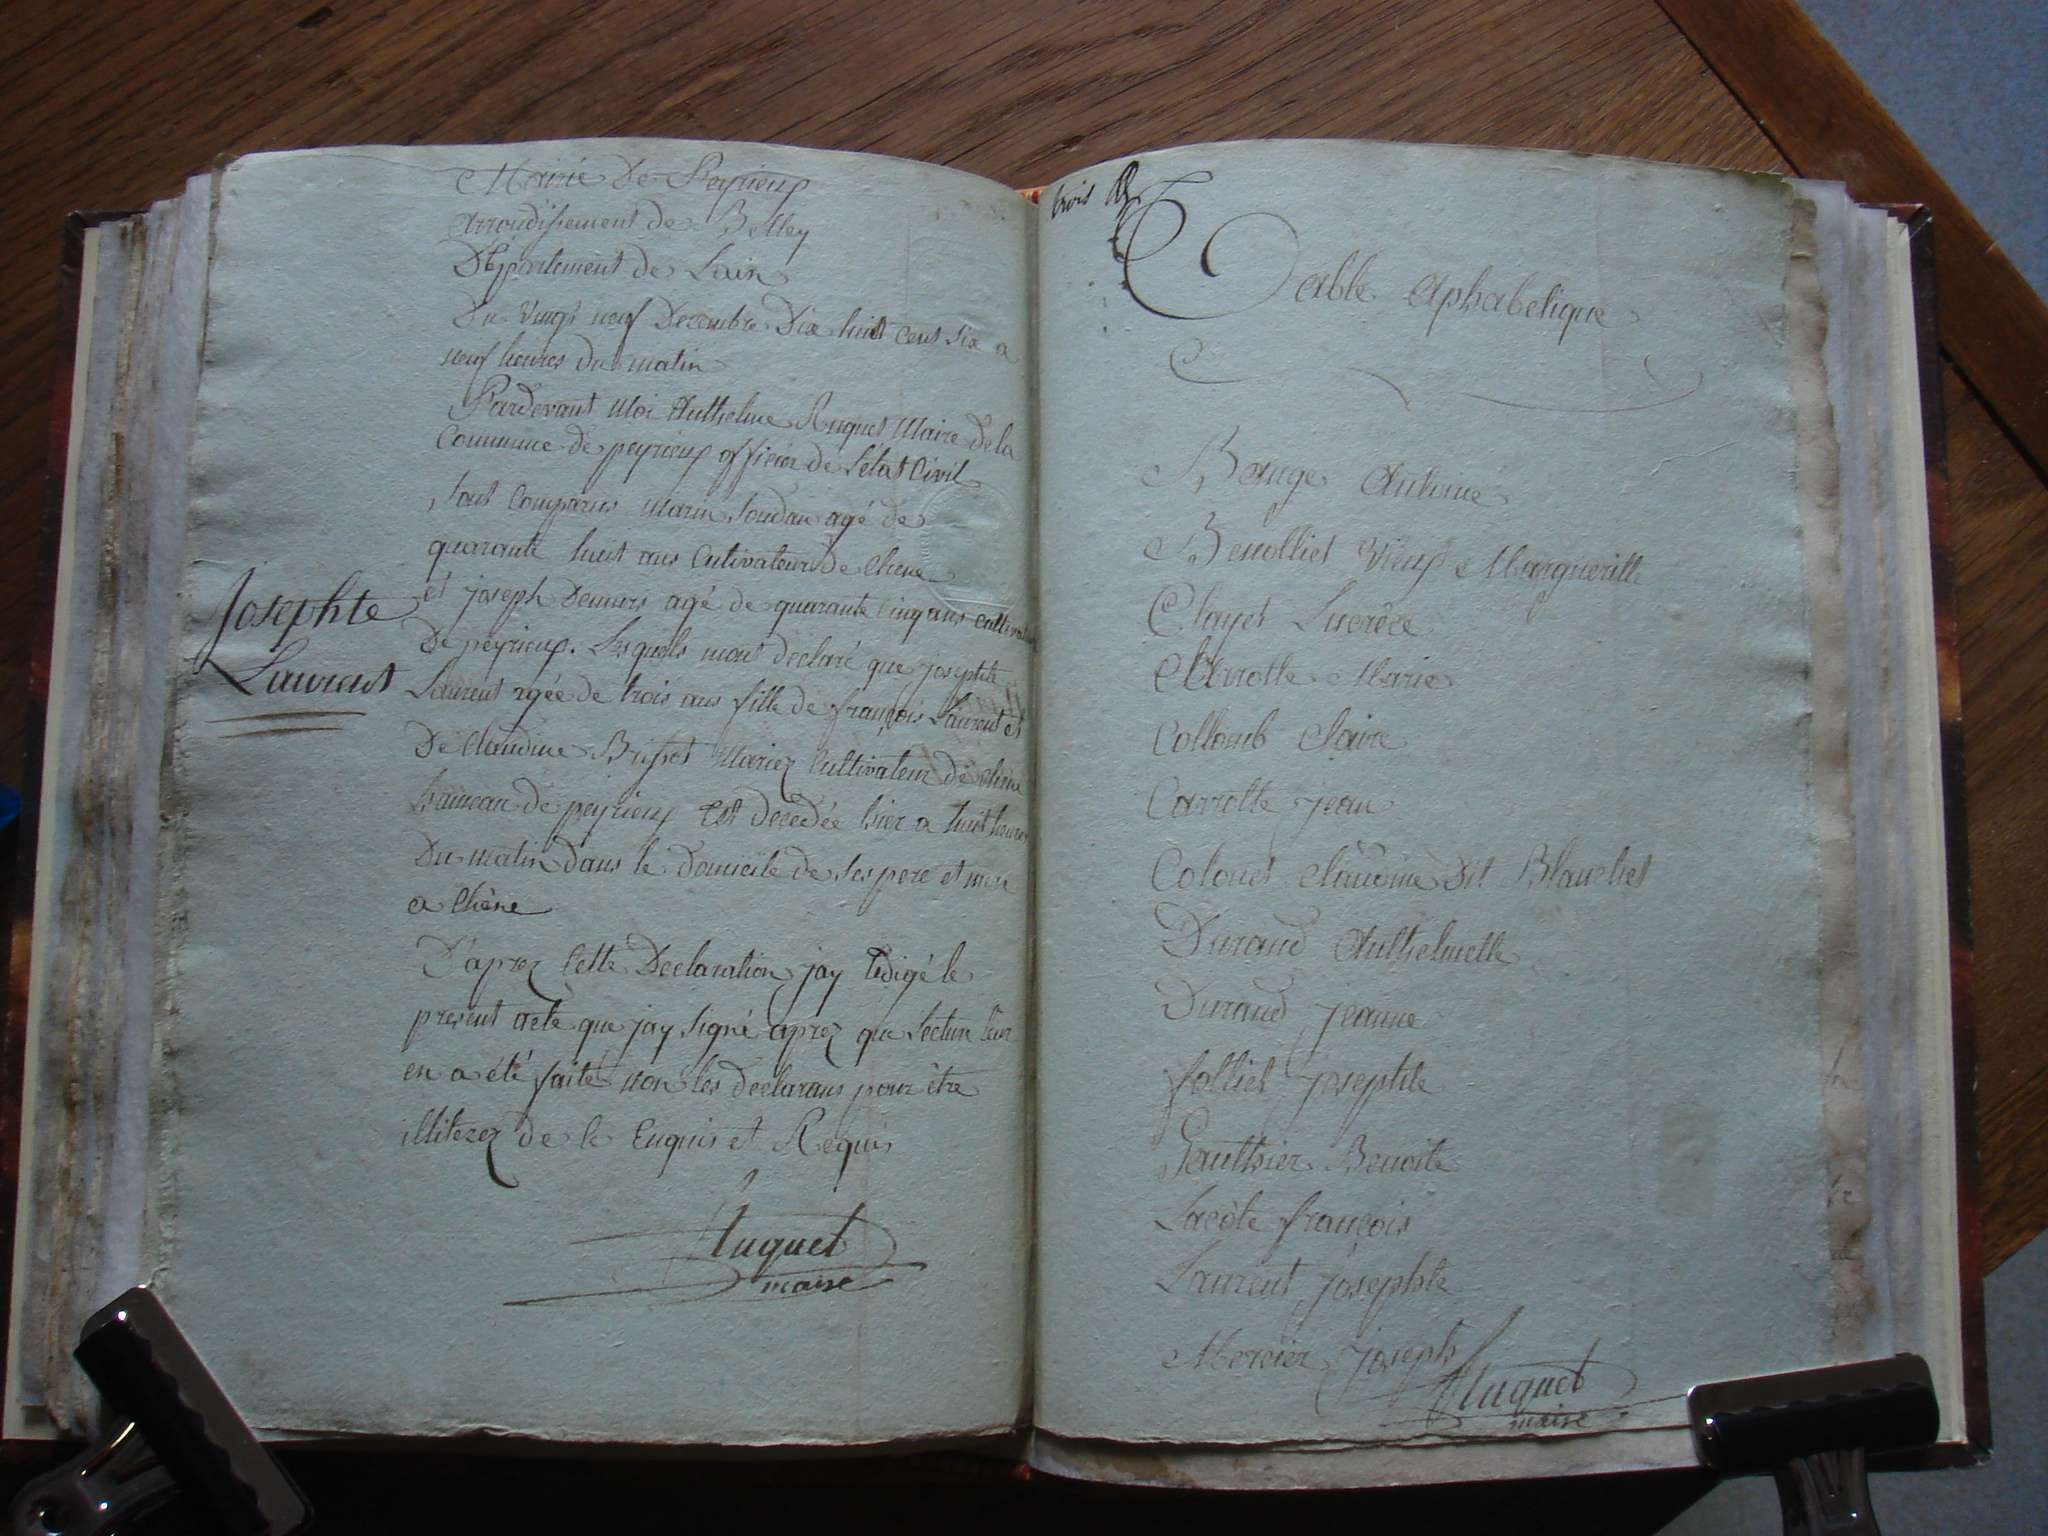 Mairie De Peyrieux
Arrondissement de Belley
Département de Lain
Du vingt neuf Decembre Dix huit cent six a
neuf heures du matin
Pardevant moi Anthelme Huguet Maire de la
Commune de peyrieux officier de l'état Civil
sont comparus Marin Soudan agé de
quarante huit ans Cultivateur de Chene
et joseph Demurs agé de quarante Cinq ans
De peyrieux. Lesquels mont declaré que josephte
Josephte
Laurent
Laurent agée de trois ans fille de françois Laurent et
De Claudine Brissot Mariez Cultivateur de chene
hameau de peyrieux Est decedée hier a huit heures
Du matin dans le Domicile de ses pere et mere
a Chêne
D'aprez Cette Declaration jay redigé le
present acte que jay signé aprez que Lecture leur
en a été faite non les declarans pour être
illiterez de ce Enquis et Requis
Huguet
maire
trois
Table Aphabetique
Bauge Antoine
Benolliet Vieux Margueritte
Clayet Lucrèce
Carrotte Marie
Colloub Claire
Carrotte jean
Colouet Claudine Dit Blanchet
Durand Anthelmette
Durand jeanne
folliet josephte
Gauthier Benoite
Lacôte françois
Laurent josephte
Mercier joseph
Huguet
maire